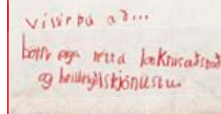 vissir þú að...
börn eiga rétta læknisaðstoð
og heilbrigðisþjónustu.